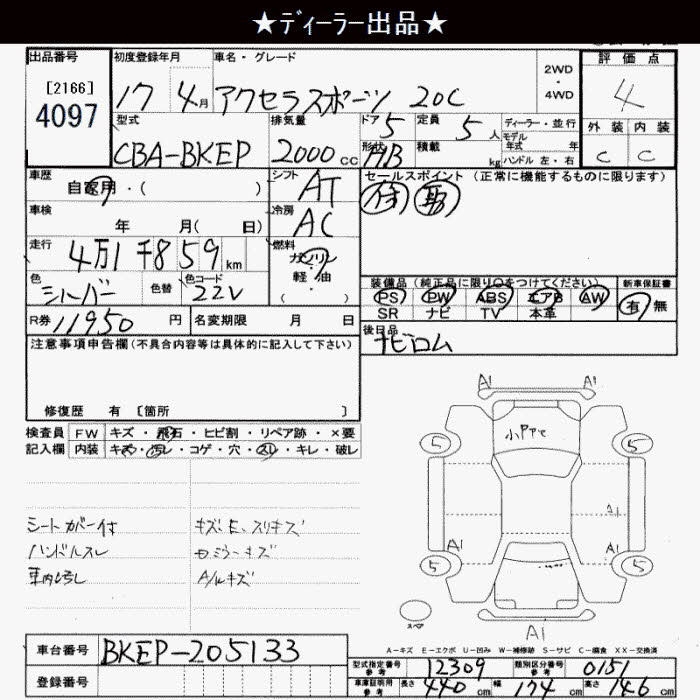 ★ディーラー出品★
出品番号
[2166]
4097
初度登録年月
17 4月
車名・グレード
アクセラスポーツ 20C
2WD
・
4WD
評価点
4
外装 内装
C C
型式
CBA-BKEP
排気量
2000cc
ドア 5
形状 HB
定員 5人
積載 kg
ディーラー・並行
モデル
年式 年
ハンドル 左・右
車歴
自家用・( )
シフト
AT
セールスポイント (正常に機能するものに限ります)
車検
年 月( 日)
冷房
AC
走行
4万1千859km
燃料
ガソリン
軽・油
( )
色
シルバー
色替
色コード
22V
装備品 (純正品に限り○をつけてください)
PS PW ABS エアB AW
SR ナビ TV 本革
新車保証書
有 無
R券 11950円
名変期限 月 日
後日品
ナビロム
注意事項申告欄(不具合内容等は具体的に記入して下さい)
修復歴 有 [箇所 ]
検査員 FW キズ・飛石・ヒビ割・リペア跡・×要
記入欄 内装 キズ・汚レ・コゲ・穴・スレ・キレ・破レ
シートカバー付
ハンドルスレ
車内汚し
A/Wキズ
A1 A1
5 5
A1
A1 A1
5 5
スペア
A1
A-キズ E-エクボ U-凹み W-補修跡 S-サビ C-腐食 XX-交換済
車台番号 BKEP-205133
登録番号
型式指定番号
参考
12309
類別区分番号
参考
0151
車庫証明用
参考
長さ 440cm 幅 174cm 高さ 146cm